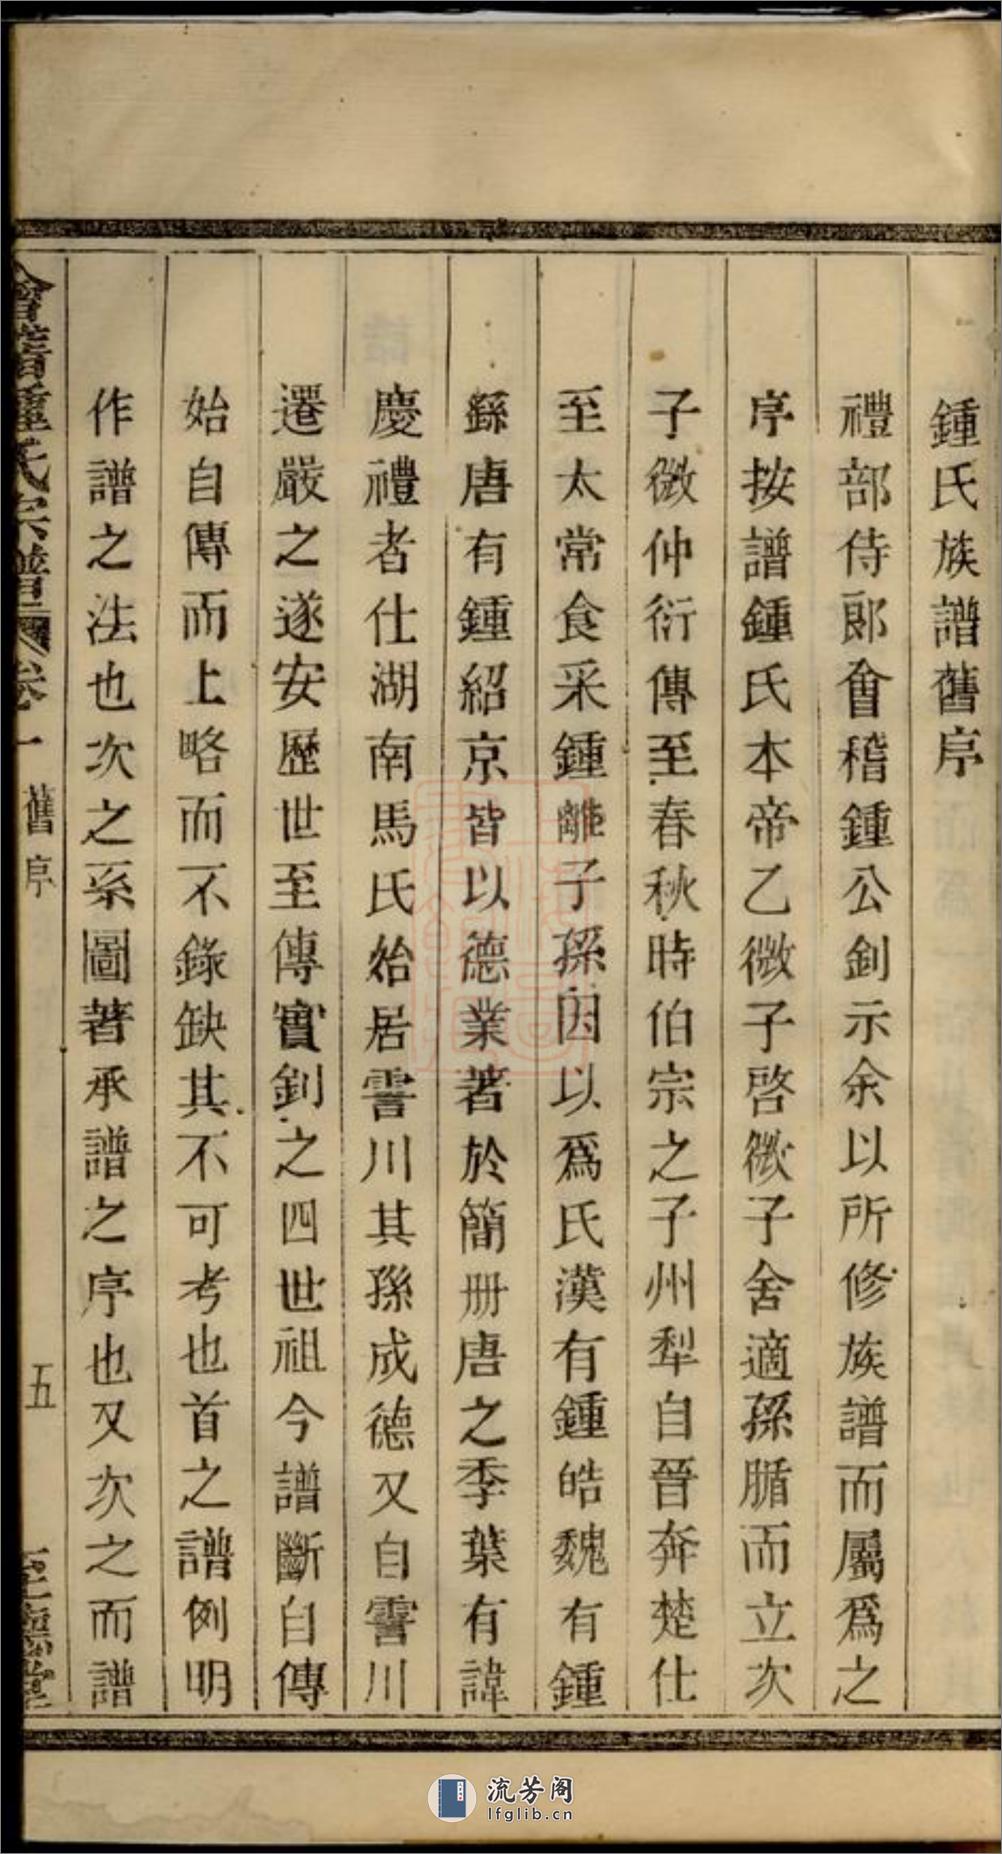 鍾氏族譜舊序
禮部侍郎會稽鍾公釗示余以所修族譜而屬爲之
序按譜鍾氏本帝乙微子啓微子舍適孫腯而立次
子微仲衍傳至春秋時伯宗之子州犁自晉奔楚仕
至太常食采鍾離子孫因以爲氏漢有鍾皓魏有鍾
繇唐有鍾紹京皆以德業著於簡册唐之季葉有諱
慶禮者仕湖南馬氏始居霅川其孫成德又自霅川
遷嚴之遂安歷世至傳實釗之四世祖今譜斷自傳
始自傳而上略而不錄缺其不可考也首之譜例明
作譜之法也次之系圖著承譜之序也又次之而譜
會稽鍾氏宗譜 卷一 舊序 五
流芳阁
lfglib.cn